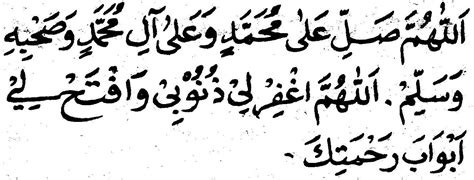 اَللّٰهُمَّ صَلِّ عَلٰى مُحَمَّدٍ وَعَلٰى آلِ مُحَمَّدٍ وَصَحْبِهِ
وَسَلِّمْ. اَللّٰهُمَّ اغْفِرْ لِيْ ذُنُوْبِيْ وَافْتَحْ لِيْ
اَبْوَابَ رَحْمَتِكَ -